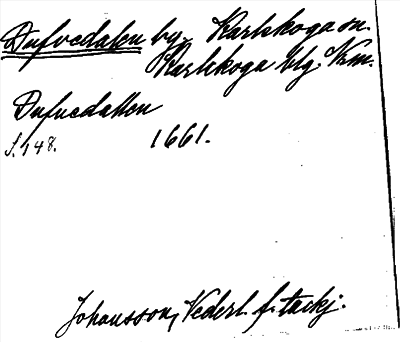 Dufvedalen by, Karlskoga sn.
Karlskoga blg. Vrm.
Dufuedallen
s. 148. 1661.
Johansson, Vederl. f. tackj.